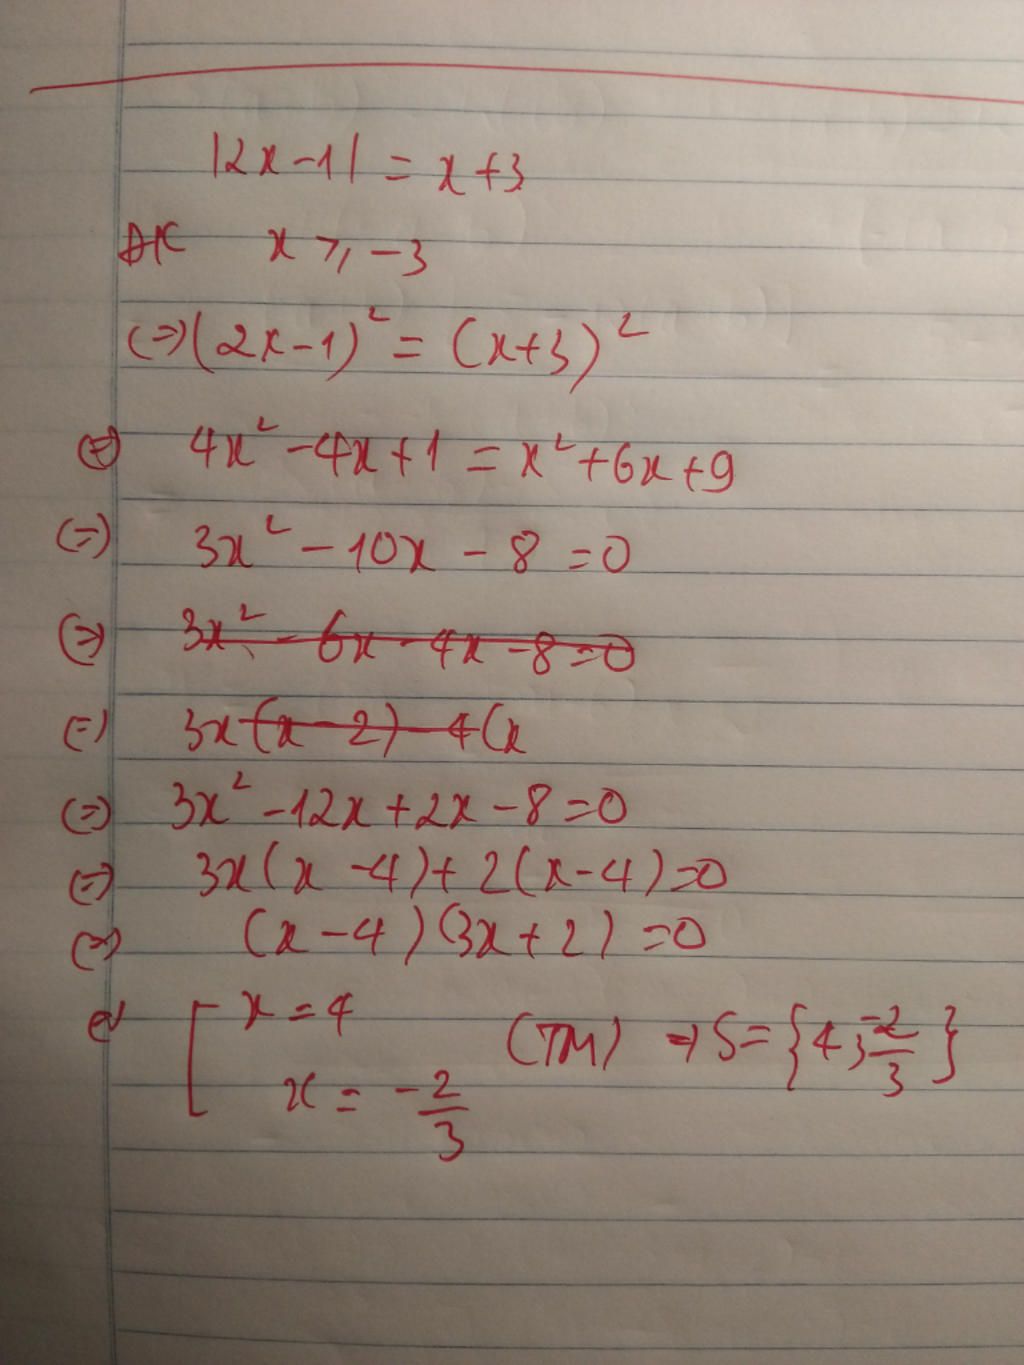 |2x-1| = x+3
ĐK x ⩾ -3
(=) (2x-1)² = (x+3)²
(=) 4x² - 4x + 1 = x² + 6x + 9
(=) 3x² - 10x - 8 = 0
(=) 3x² - 6x - 4x - 8 = 0
(=) 3x(x - 2) - 4(x
(=) 3x² - 12x + 2x - 8 = 0
(=) 3x(x - 4) + 2(x - 4) = 0
(=) (x - 4)(3x + 2) = 0
(=) [ x = 4
x = -2/3 (TM) => S = {4; -2/3}